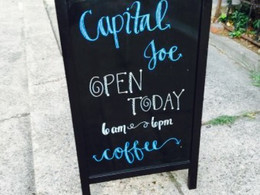 Capital
Joe
OPEN
TODAY
6am → 6pm
coffee